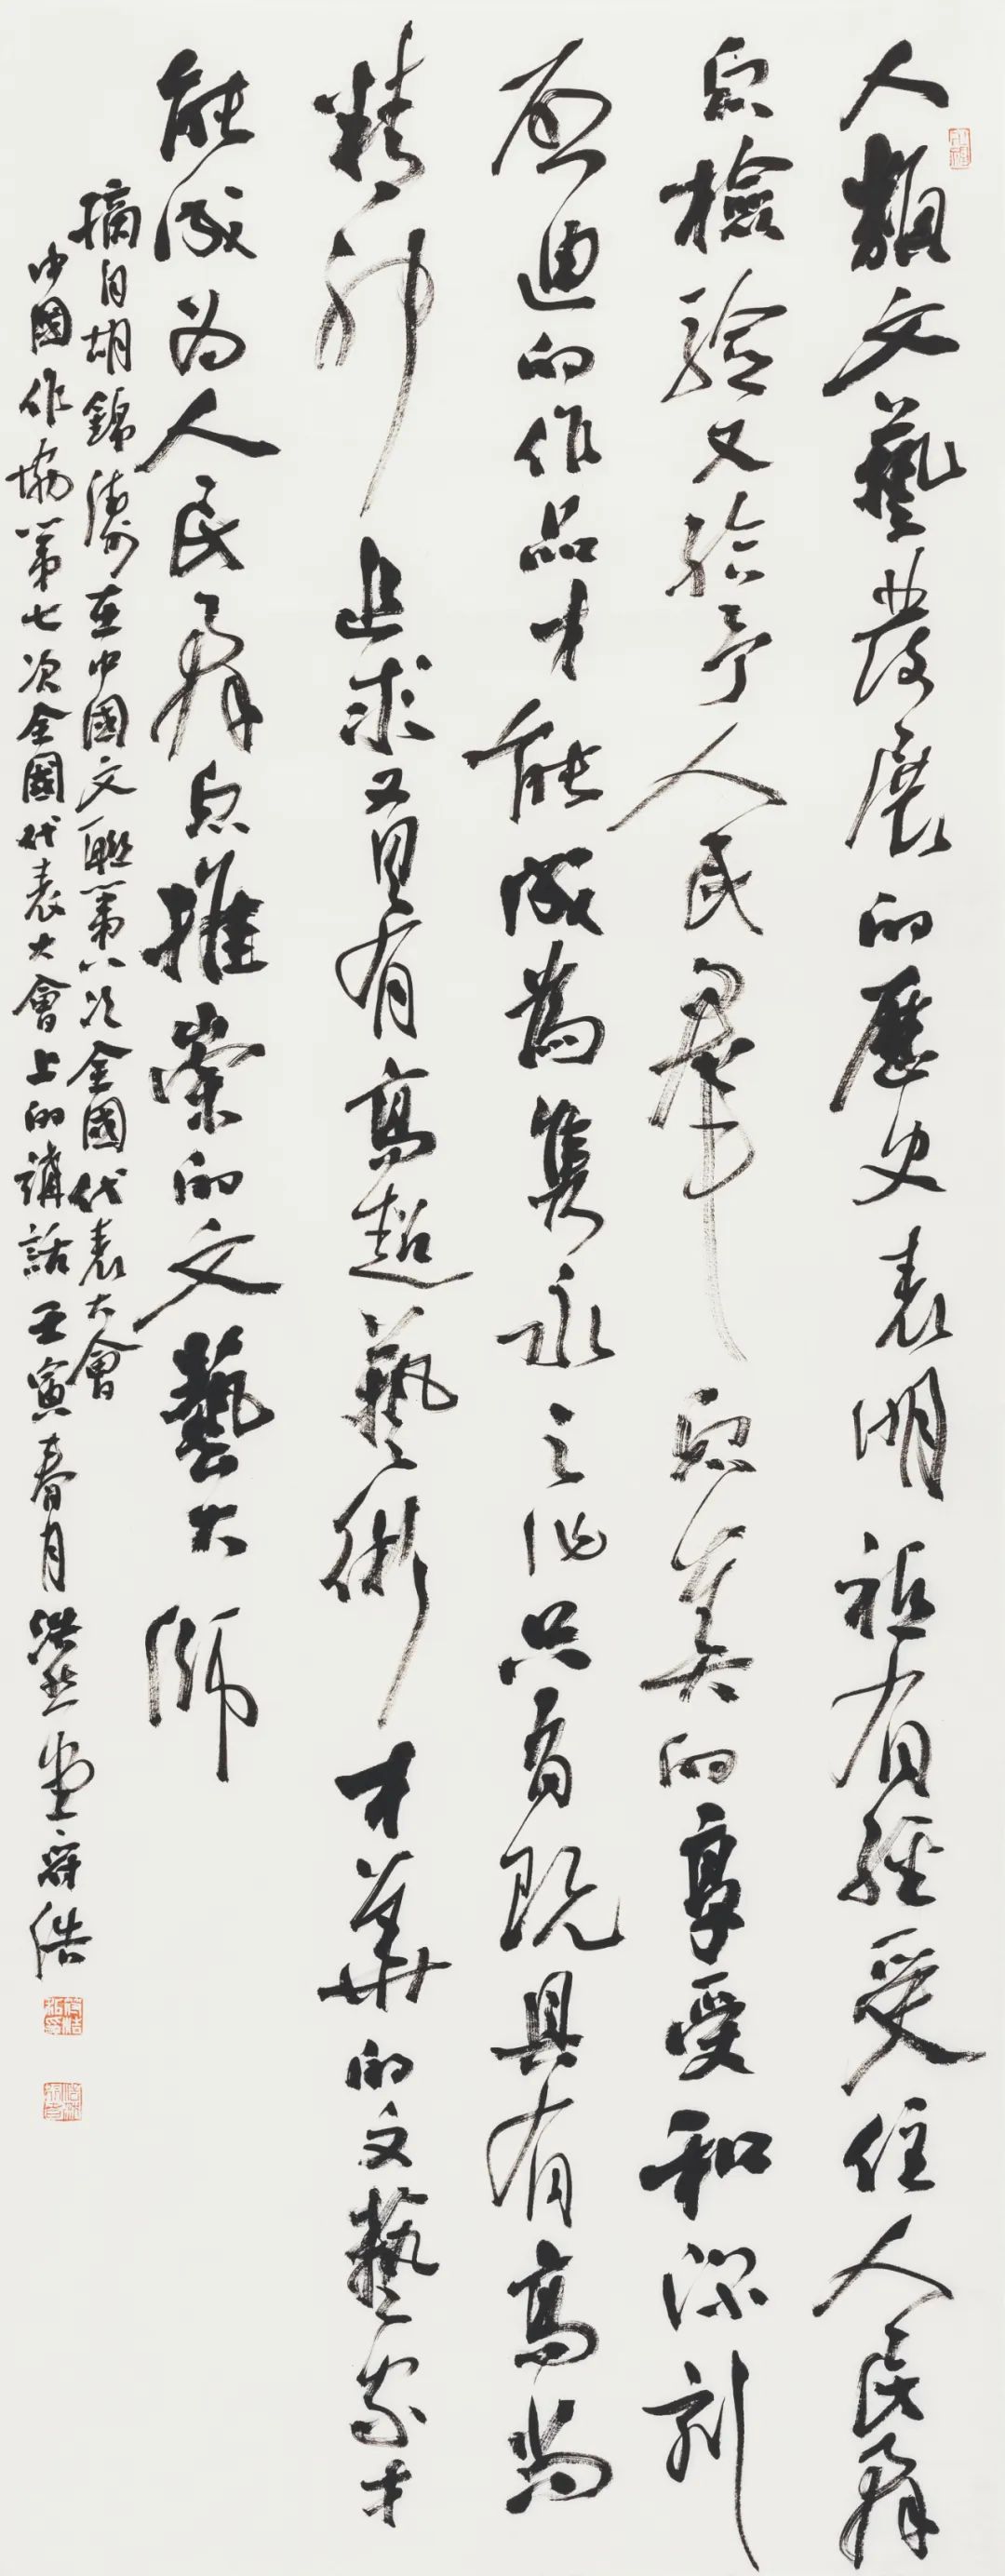 人類文藝發展的歷史表明祗有經受住人民群
眾檢驗又給予人民群眾美的享受和深刻
啟迪的作品才能成為雋永之作只有既具有高尚
精神追求又有高超藝術才華的文藝家才
能成為人民群眾推崇的文藝大師
摘自胡錦濤在中國文聯第八次全國代表大會
中國作協第七次全國代表大會上的講話壬寅春月浩然堂符浩